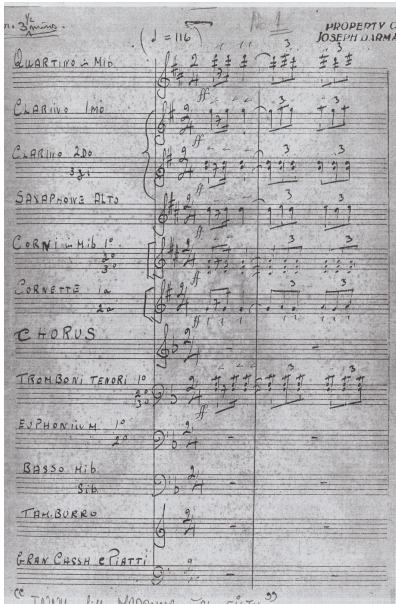 PROPERTY O
JOSEPH DARMA
(♩ = 116)
QUARTINO in Mib
ff
CLARINO 1mo
ff
CLARINO 2Do
3zi
ff
SAXAPHONE ALTO
ff
CORNI in Mib 1º
2º
3º
ff
CORNETTE 1a
2a
ff
CHORUS
TROMBONI TENORI 1º
2º
3º
ff
EUPHONIUM 1º
2º
BASSO Mib
Sib
TAMBURRO
GRAN CASSA e PIATTI